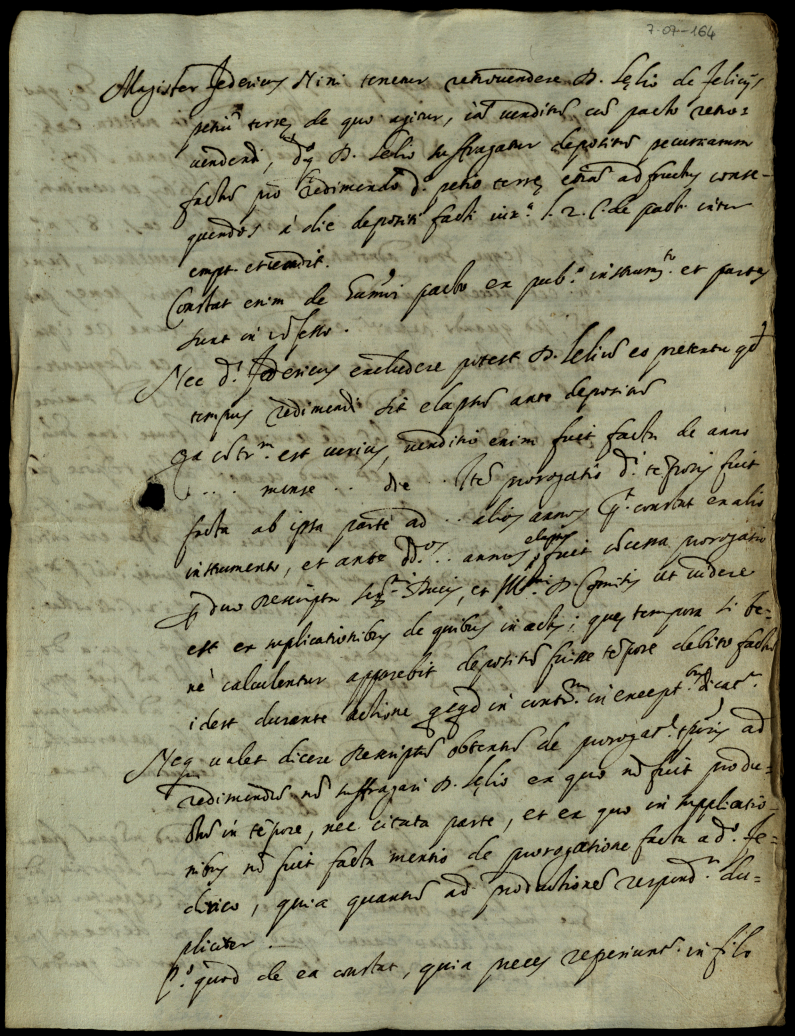 7-07-164
Magister Federicus Nini tenetur retrovendere D. Lelio de Felicijs
petiã terrę de quo agitur, iã venditã cũ pacto retro=
vendendi, D. Lelio suffragatur depositũ pecuniarum
factũ pro redimenda d.ª petia terrę etiã ad fructus conse-
quendos à die depositi facti iux.ª l. 2. C. de pact. inter
empt. et vendit.
Constat enim de pacto ex pub.º instrum.to et partes
sunt in cõfesso.
Nec d.s Federicus excludere potest D. Leliũ eo pretextu qd
tempus redimendi sit elapsũ ante depositũ
Qa cõtr.m est verius, venditio enim fuit facta de anno
. . . . mense . . die . . Itẽ prorogatio d.i tẽporis fuit
facta ab ipsa parte ad . . alios annos constat ex alio
instrumento, et ante dd.os . . annos elapsos fuit cõcessa prorogatio
p duo Rescripta Ser.mi Ducis, et Ill.mi D. Comitis ut videre
est ex supplicationibus de quibus in actis; quę tempora si be=
ne calculentur apparebit depositũ fuisse tẽpore debito factũ
idest durante actione in contr.m in except.bus dicat.r
Neq valet dicere Rescriptũ obtentũ de prorogat.e tpris ad
redimendũ nõ suffragari D. Lelio ex quo nõ fuit produ=
ctũ in tẽpore, nec citata parte, et ex quo in supplicatio-
nibus nõ fuit facta mentio de prorogatione facta a d.º Fe=
derico, quia quantũ ad productionẽ respond.r du=
pliciter.
P.º quod de ea constat, quia preces reperiunt.r in filo